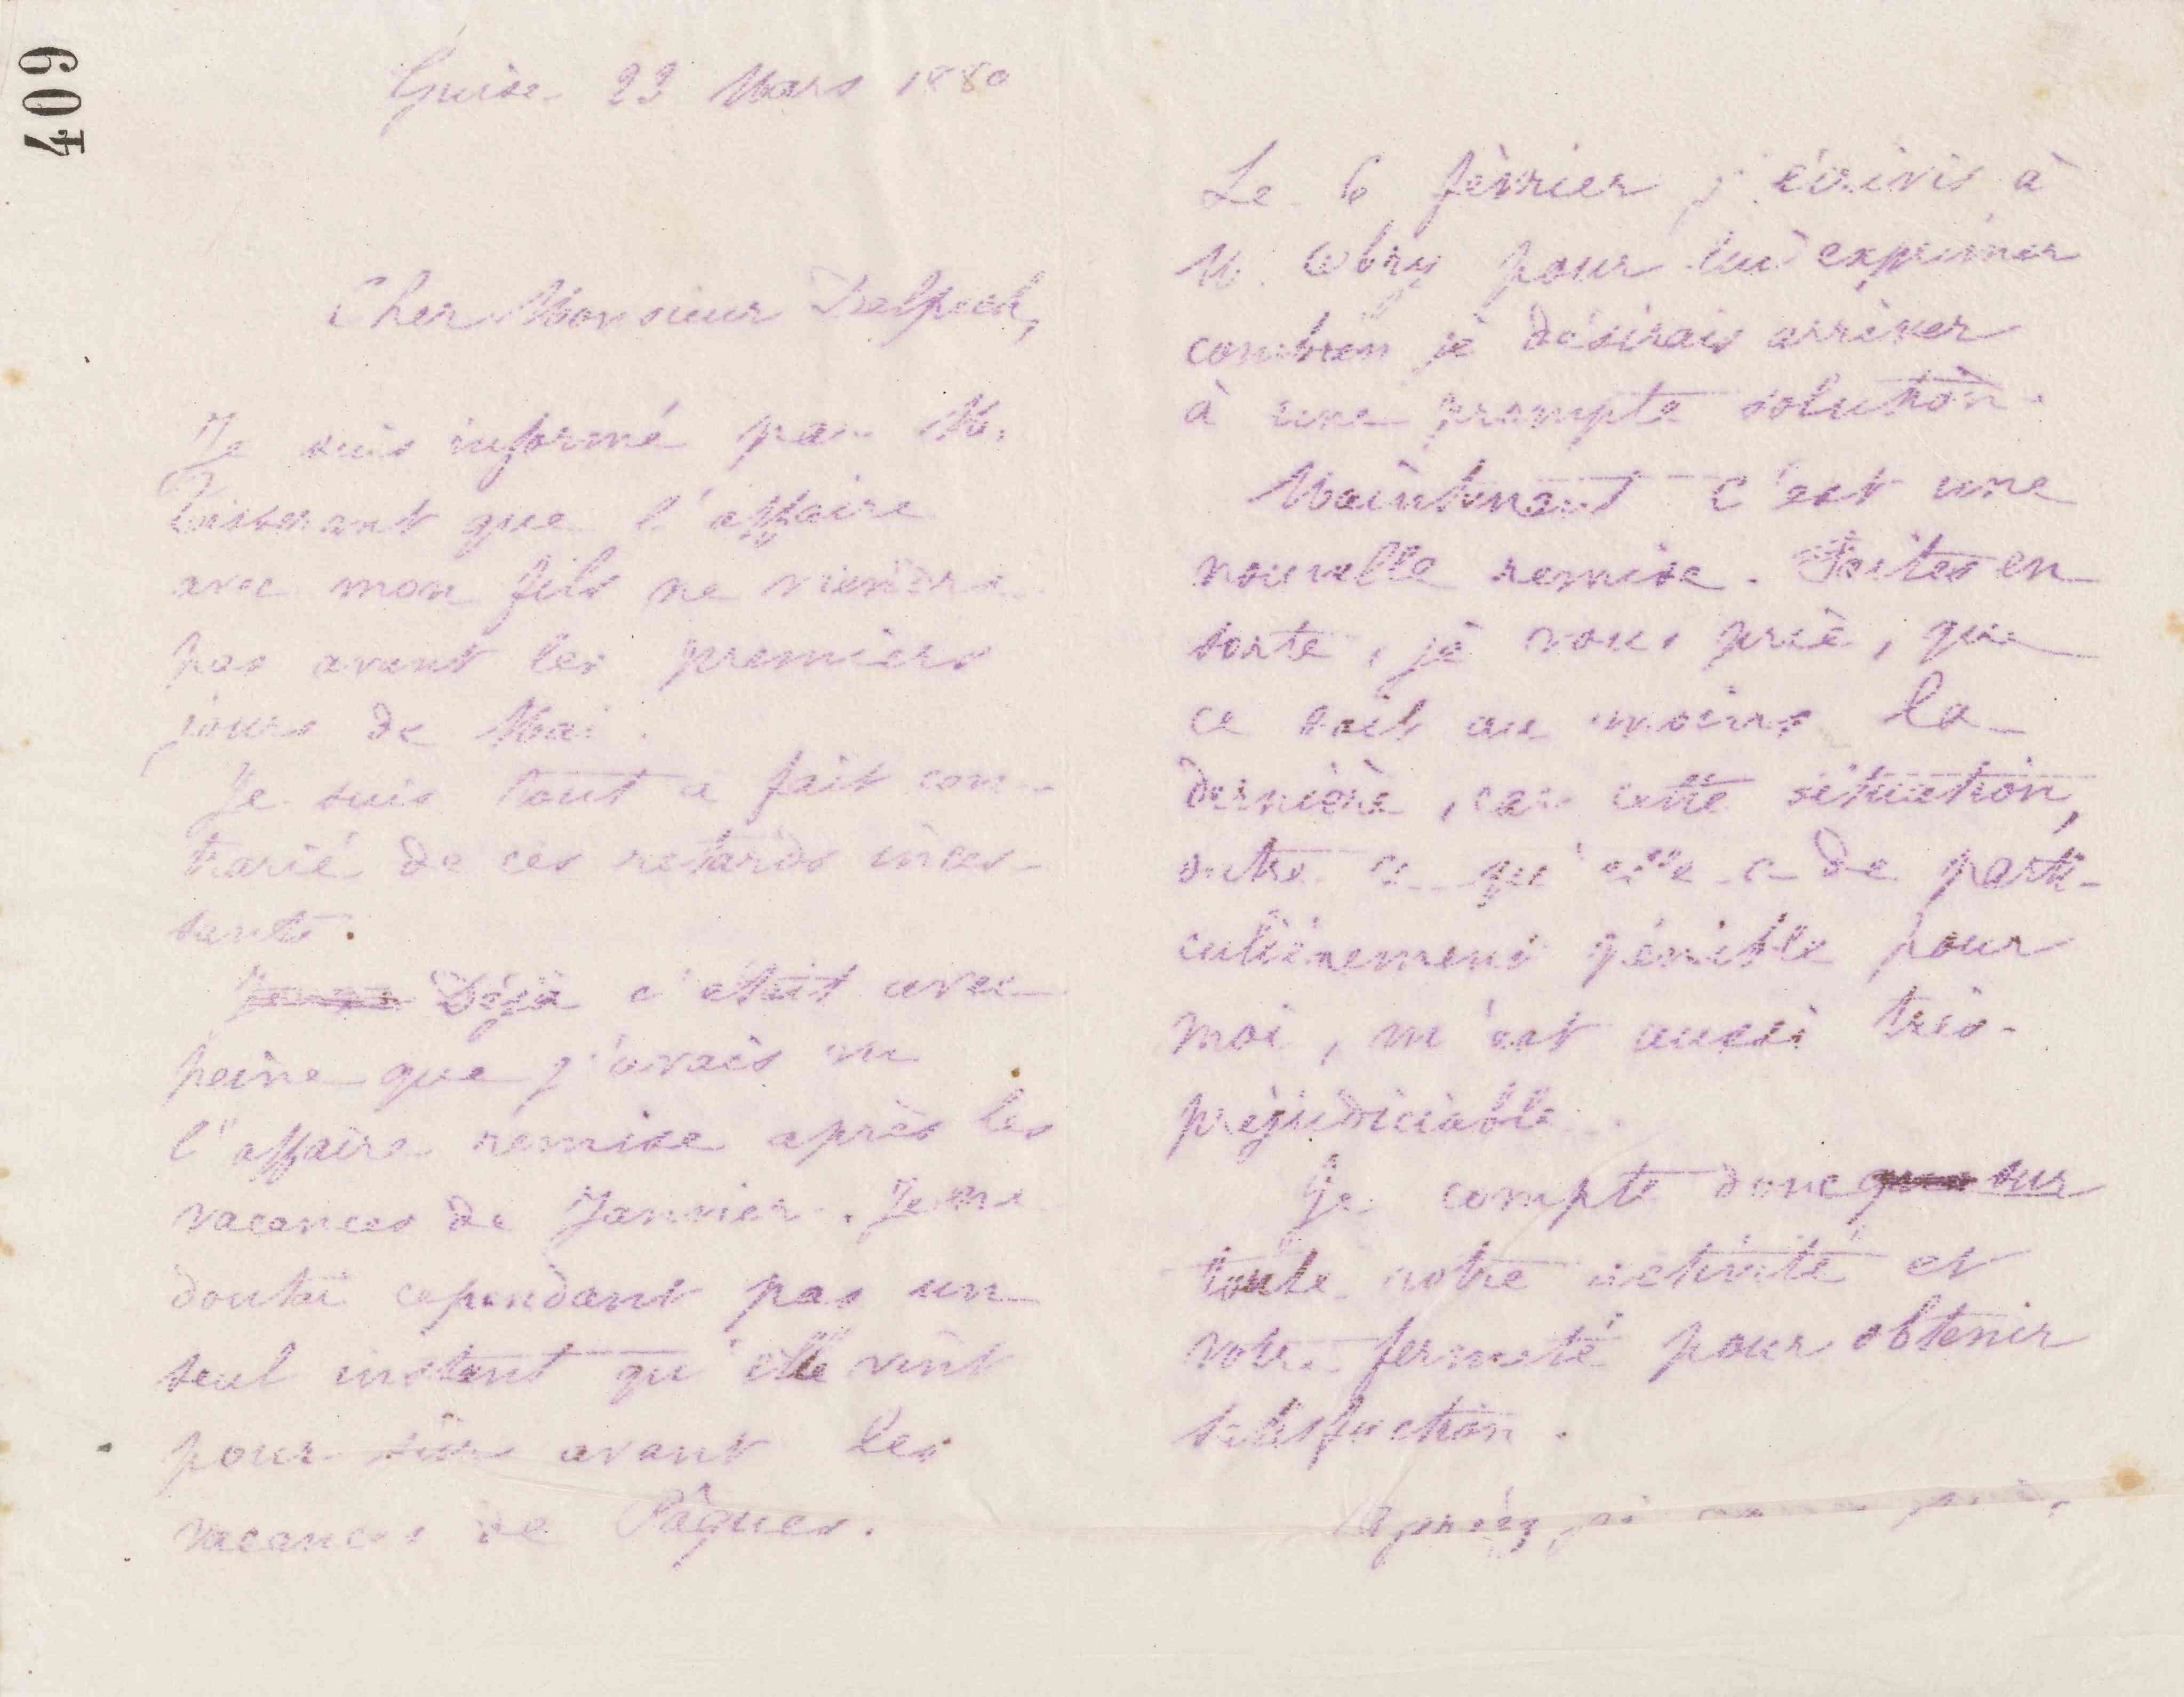 409
Guise 23 Mars 1880
Cher Monsieur Delpech,
Je suis informé par M.
Tisserant que l'affaire
avec mon fils ne viendra
pas avant les premiers
jours de Mai.
Je suis tout a fait con-
trarié de ces retards inces-
sants.
Déjà c'était avec
peine que j'avais vu
l'affaire remise après les
vacances de Janvier. Je ne
doutai cependant pas un
seul instant qu'elle vînt
pour sûr avant les
vacances de Pâques.
Le 6 février j'écrivis à
M. pour lui exprimer
combien je désirais arriver
à une prompte solution.
Maintenant c'est une
nouvelle remise. Faites en
sorte, je vous prie, que
ce soit au moins la
dernière, car cette situation,
outre ce qu'elle a de parti-
culièrement pénible pour
moi, m'est aussi très-
préjudiciable.
Je compte donc sur
toute votre activité et
votre fermeté pour obtenir
satisfaction.
Agréez, je vous prie,